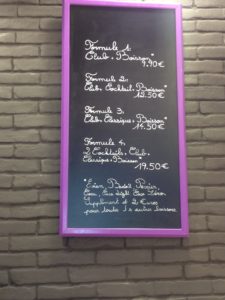 Formule 1:
Club, Boisson*
9.90€
Formule 2:
Club, Cocktail, Boisson*
12.50€
Formule 3:
Club, Classique, Boisson*
14.50€
Formule 4:
2 Cocktails, Club,
Classique, Boisson*
19.50€
Perrier,
Supplément 2 Euros
pour toute autre boisson.